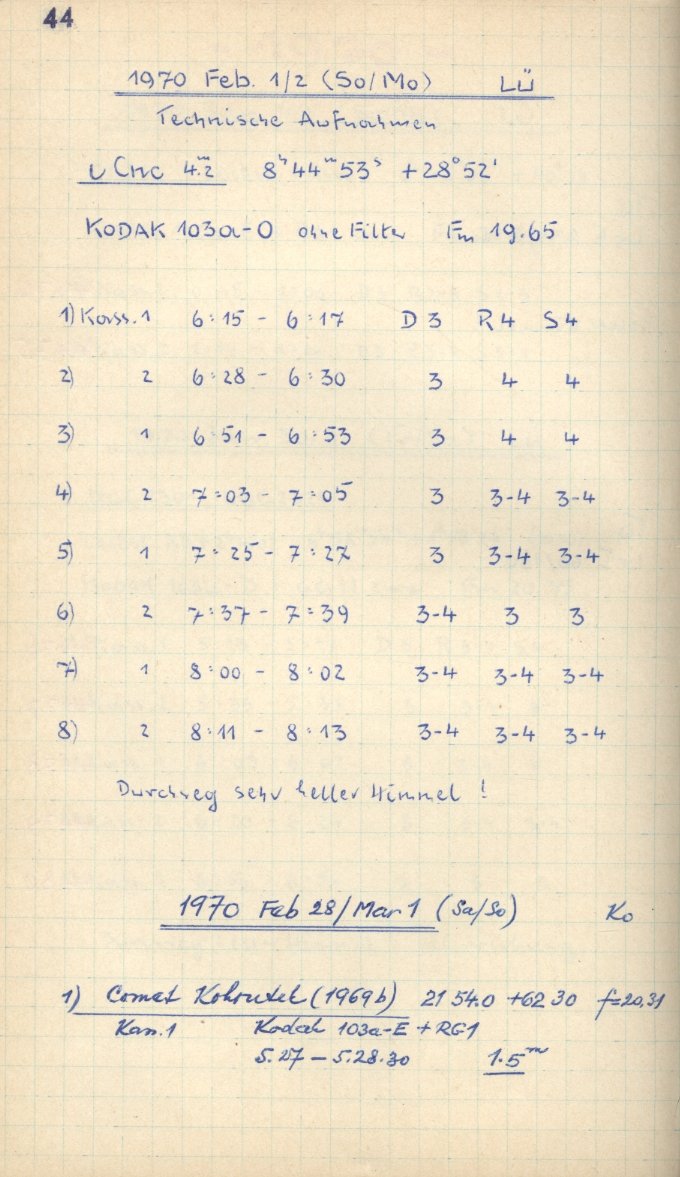 44
1970 Feb. 1/2 (So/Mo) LÜ
Technische Aufnahmen
ι Cnc 4.ᵐ2 8ʰ44ᵐ53ˢ +28°52'
KODAK 103a-O ohne Filter Fm 19.65
1) Kass. 1 6:15 - 6:17 D 3 R 4 S 4
2) 2 6:28 - 6:30 3 4 4
3) 1 6:51 - 6:53 3 4 4
4) 2 7:03 - 7:05 3 3-4 3-4
5) 1 7:25 - 7:27 3 3-4 3-4
6) 2 7:37 - 7:39 3-4 3 3
7) 1 8:00 - 8:02 3-4 3-4 3-4
8) 2 8:11 - 8:13 3-4 3-4 3-4
Durchweg sehr heller Himmel !
1970 Feb 28/Mar 1 (Sa/So) Ko
1) Comet Kohoutek (1969b) 21 54.0 +62 30 f=20.31
Kass. 1 Kodak 103a-E + RG1
5.27 - 5.28.30 1.5ᵐ